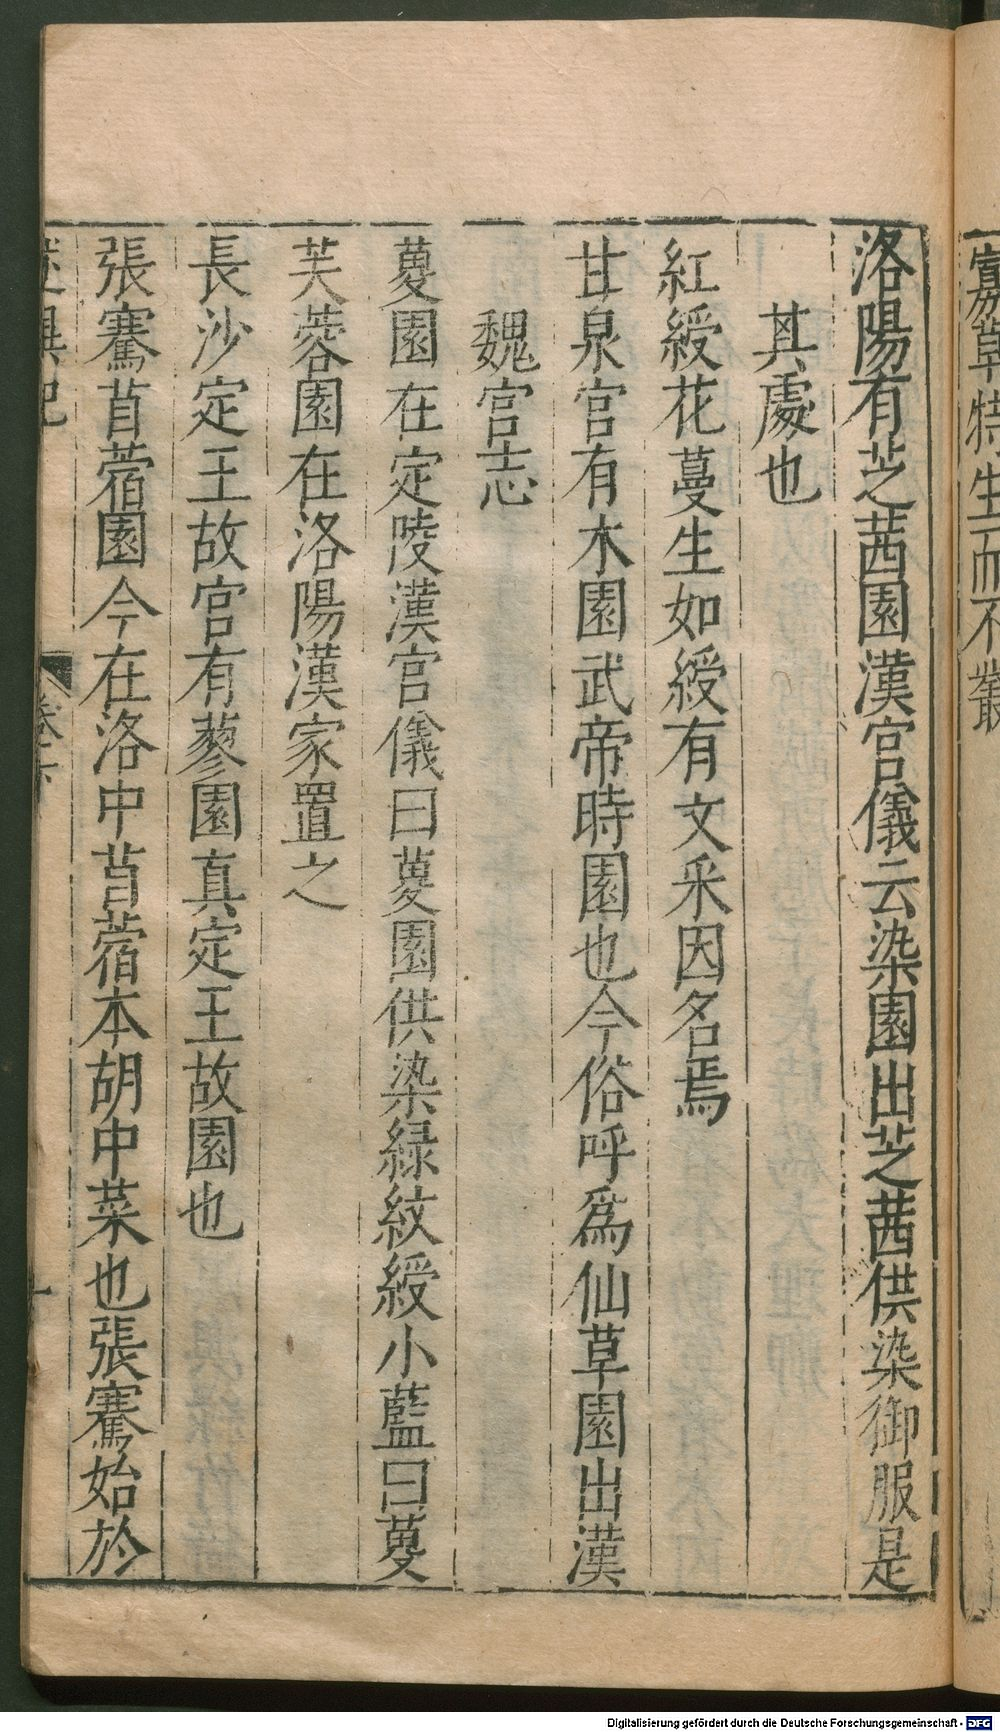 嘉草特生而不叢
洛陽有芝茜園漢官儀云染園出芝茜供染御服是
其處也
紅綬花蔓生如綬有文采因名焉
甘泉宮有木園武帝時園也今俗呼爲仙草園出漢
魏宮志
蔓園在定陵漢官儀曰蔓園供染緑紋綬小藍曰蔓
芙蓉園在洛陽漢家置之
長沙定王故宮有蓼園真定王故園也
張騫苜蓿園今在洛中苜蓿本胡中菜也張騫始於
述異記 卷下 十
Digitalisierung gefördert durch die Deutsche Forschungsgemeinschaft - DFG